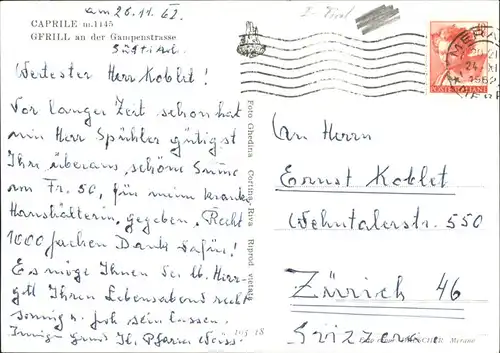 am 26.11.62.
CAPRILE m.1145
GFRILL an der Gampenstrasse
Südtirol.
Wertester Herr Koblet!
Vor langer Zeit schon hat
mir Herr Spühler gütigst
Ihre überaus schöne Summe
am Fr. 50, für meine kranke
Haushälterin, gegeben. Recht
1000 fachen Dank dafür!
Es möge Ihnen der lb. Herr-
gott Ihren Lebensabend recht
sonnig u. froh sein lassen.
Innige Pfarrer Weiss.
Foto Ghedina Cortina Riva Riprod. vietata
195 18
MERA
24. XI
1962
POSTE ITALIANE
An Herrn
Ernst Koblet
Wehntalerstr. 550
Zürich 46
Svizzera
Merano